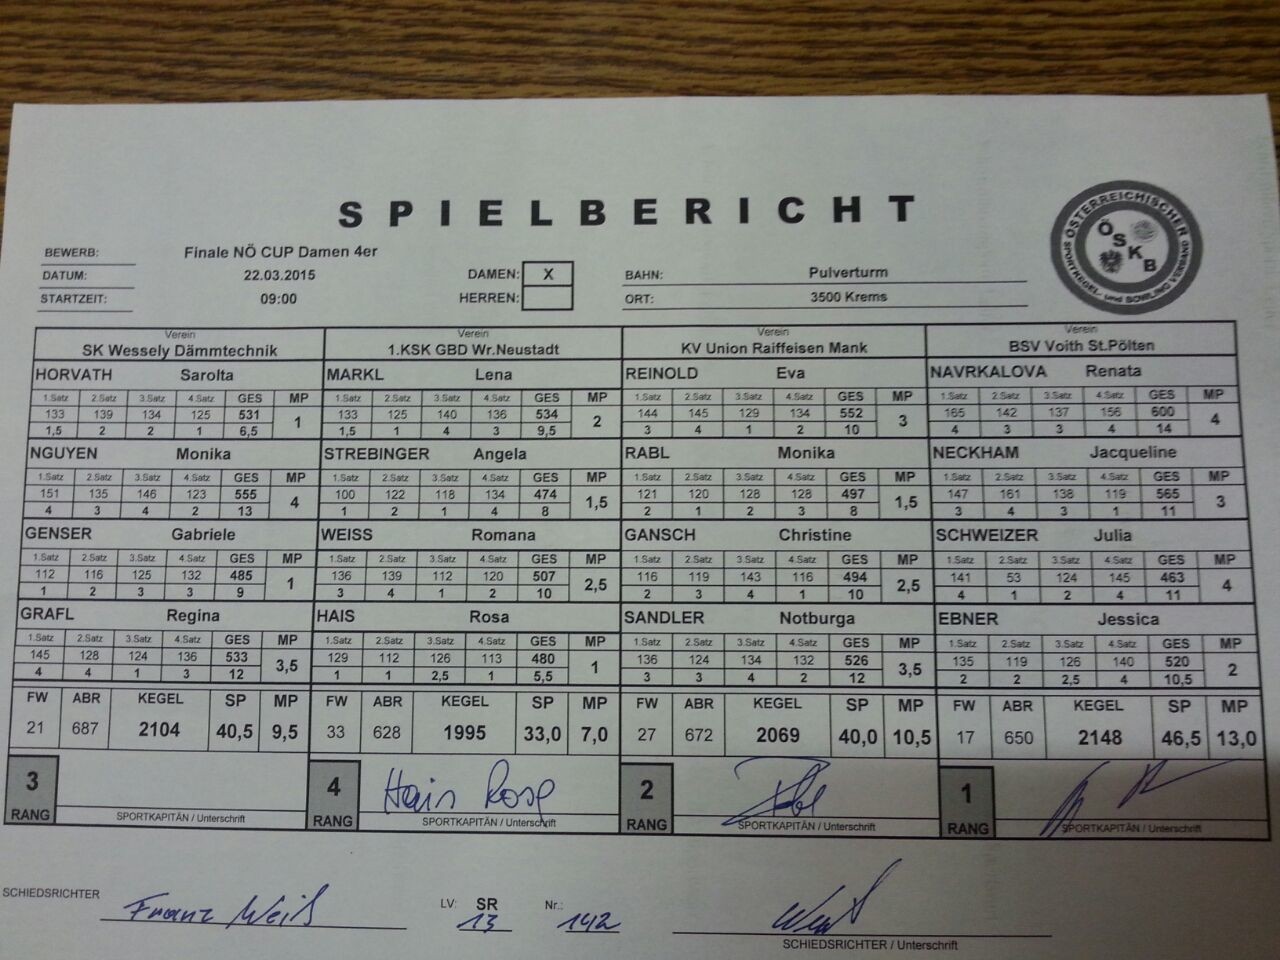 SPIELBERICHT
ÖSTERREICHISCHER
SPORTKEGEL- und BOWLING VERBAND
ÖSKB
BEWERB: Finale NÖ CUP Damen 4er
DATUM: 22.03.2015 DAMEN: X BAHN: Pulverturm
STARTZEIT: 09:00 HERREN: ORT: 3500 Krems
Verein Verein Verein Verein
SK Wessely Dämmtechnik 1.KSK GBD Wr.Neustadt KV Union Raiffeisen Mank BSV Voith St.Pölten
HORVATH Sarolta MARKL Lena REINOLD Eva NAVRKALOVA Renata
1.Satz 2.Satz 3.Satz 4.Satz GES MP 1.Satz 2.Satz 3.Satz 4.Satz GES MP 1.Satz 2.Satz 3.Satz 4.Satz GES MP 1.Satz 2.Satz 3.Satz 4.Satz GES MP
133 139 134 125 531 1 133 125 140 136 534 2 144 145 129 134 552 3 165 142 137 156 600 4
1,5 2 2 1 6,5 1,5 1 4 3 9,5 3 4 1 2 10 4 3 3 4 14
NGUYEN Monika STREBINGER Angela RABL Monika NECKHAM Jacqueline
1.Satz 2.Satz 3.Satz 4.Satz GES MP 1.Satz 2.Satz 3.Satz 4.Satz GES MP 1.Satz 2.Satz 3.Satz 4.Satz GES MP 1.Satz 2.Satz 3.Satz 4.Satz GES MP
151 135 146 123 555 4 100 122 118 134 474 1,5 121 120 128 128 497 1,5 147 161 138 119 565 3
4 3 4 2 13 1 2 1 4 8 2 1 2 3 8 3 4 3 1 11
GENSER Gabriele WEISS Romana GANSCH Christine SCHWEIZER Julia
1.Satz 2.Satz 3.Satz 4.Satz GES MP 1.Satz 2.Satz 3.Satz 4.Satz GES MP 1.Satz 2.Satz 3.Satz 4.Satz GES MP 1.Satz 2.Satz 3.Satz 4.Satz GES MP
112 116 125 132 485 1 136 139 112 120 507 2,5 116 119 143 116 494 2,5 141 53 124 145 463 4
1 2 3 3 9 3 4 1 2 10 2 3 4 1 10 4 1 2 4 11
GRAFL Regina HAIS Rosa SANDLER Notburga EBNER Jessica
1.Satz 2.Satz 3.Satz 4.Satz GES MP 1.Satz 2.Satz 3.Satz 4.Satz GES MP 1.Satz 2.Satz 3.Satz 4.Satz GES MP 1.Satz 2.Satz 3.Satz 4.Satz GES MP
145 128 124 136 533 3,5 129 112 126 113 480 1 136 124 134 132 526 3,5 135 119 126 140 520 2
4 4 1 3 12 1 1 2,5 1 5,5 3 3 4 2 12 2 2 2,5 4 10,5
FW ABR KEGEL SP MP FW ABR KEGEL SP MP FW ABR KEGEL SP MP FW ABR KEGEL SP MP
21 687 2104 40,5 9,5 33 628 1995 33,0 7,0 27 672 2069 40,0 10,5 17 650 2148 46,5 13,0
3 4 Hais Rosa 2 1
RANG SPORTKAPITÄN / Unterschrift RANG SPORTKAPITÄN / Unterschrift RANG SPORTKAPITÄN / Unterschrift RANG SPORTKAPITÄN / Unterschrift
SCHIEDSRICHTER Franz Weiß LV: SR 13 Nr.: 142
SCHIEDSRICHTER / Unterschrift